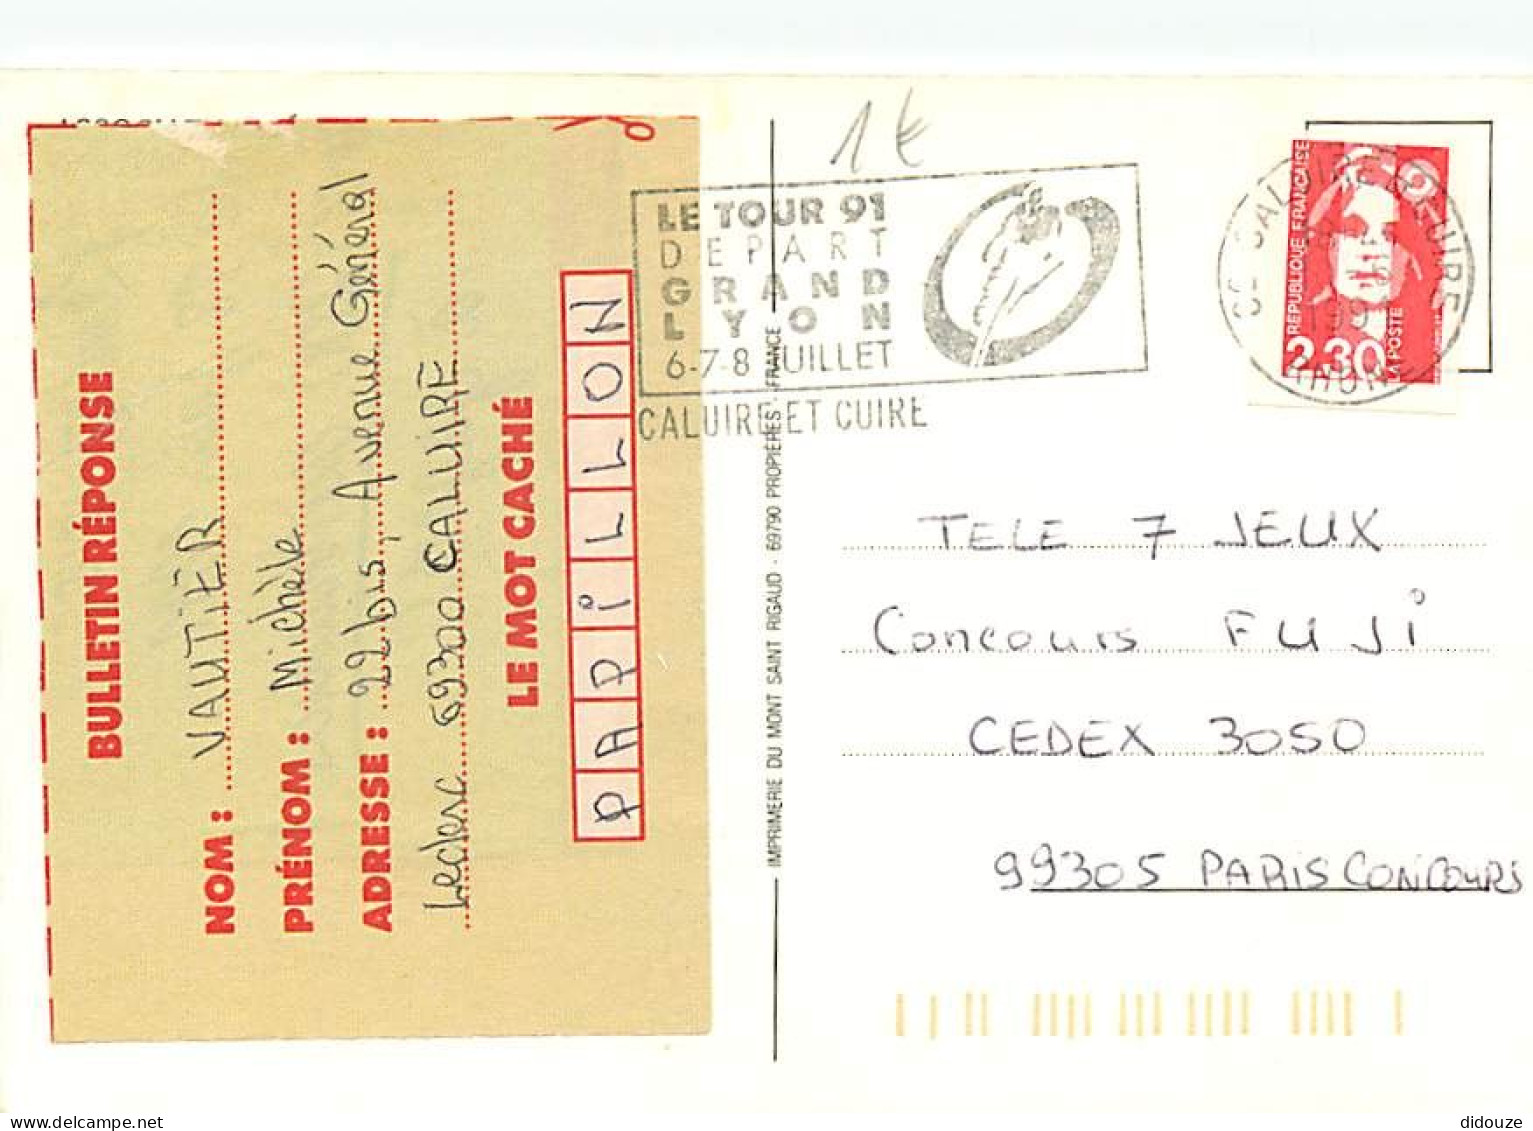 BULLETIN RÉPONSE
NOM : VAUTIER
PRÉNOM : Michèle
ADRESSE : 22bis, Avenue Général
Leclerc 69300 CALUIRE
LE MOT CACHÉ
PAPILLON
IMPRIMERIE DU MONT SAINT RIGAUD - 69790 PROPIÈRES - FRANCE
1 €
LE TOUR 91
DEPART
GRAND
LYON
6-7-8 JUILLET
CALUIRE ET CUIRE
RÉPUBLIQUE FRANÇAISE
2,30
LA POSTE
RHONE
TELE 7 JEUX
Concours FUJi
CEDEX 3050
99305 PARIS CONCOURS
delcampe.net
didouze